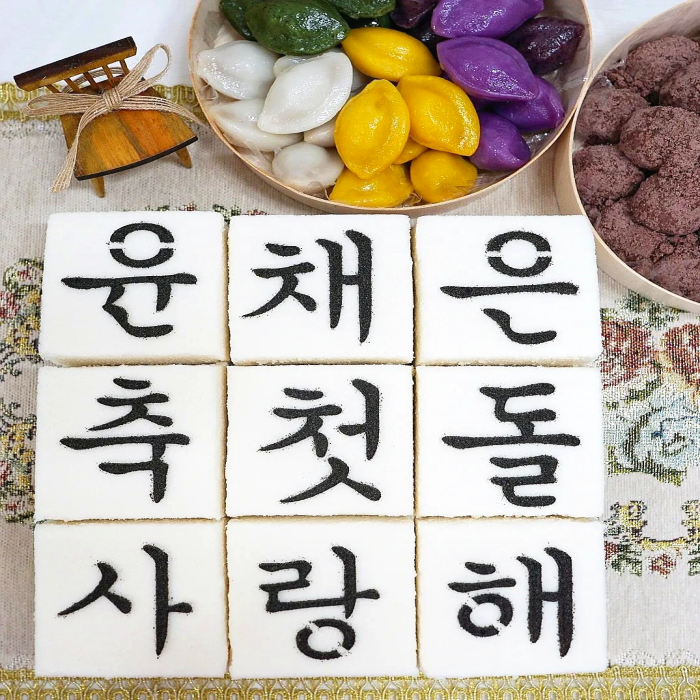 윤채은
축첫돌
사랑해